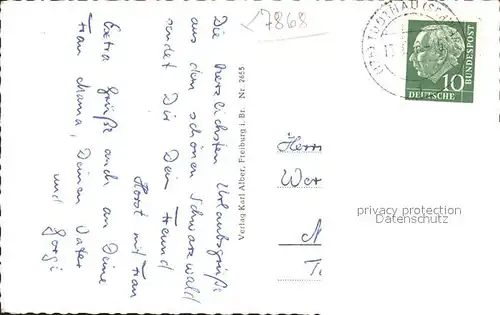 Die herzlichsten Urlaubsgrüße
aus dem schönen Schwarzwald
sendet Dir Dein Freund
Horst mit Frau
Extra Grüße auch an Deine
Frau Mama, Deinen Vater
und
7868
Verlag Karl Alber, Freiburg i. Br. Nr. 2655
TODTNAU (SCHW
10
DEUTSCHE
BUNDESPOST
Herrn
Wer
privacy protection
Datenschutz